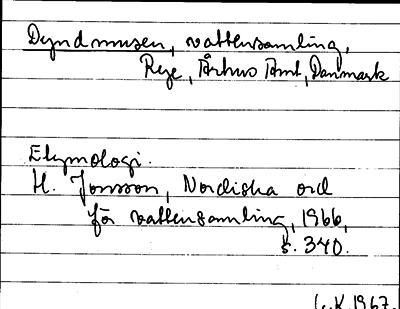 Dyndmusen, vattensamling,
Rye, Århus Amt, Danmark
Etymologi.
H. Jonsson, Nordiska ord
för vattensamling, 1966,
s. 340.
G.K. 1967.